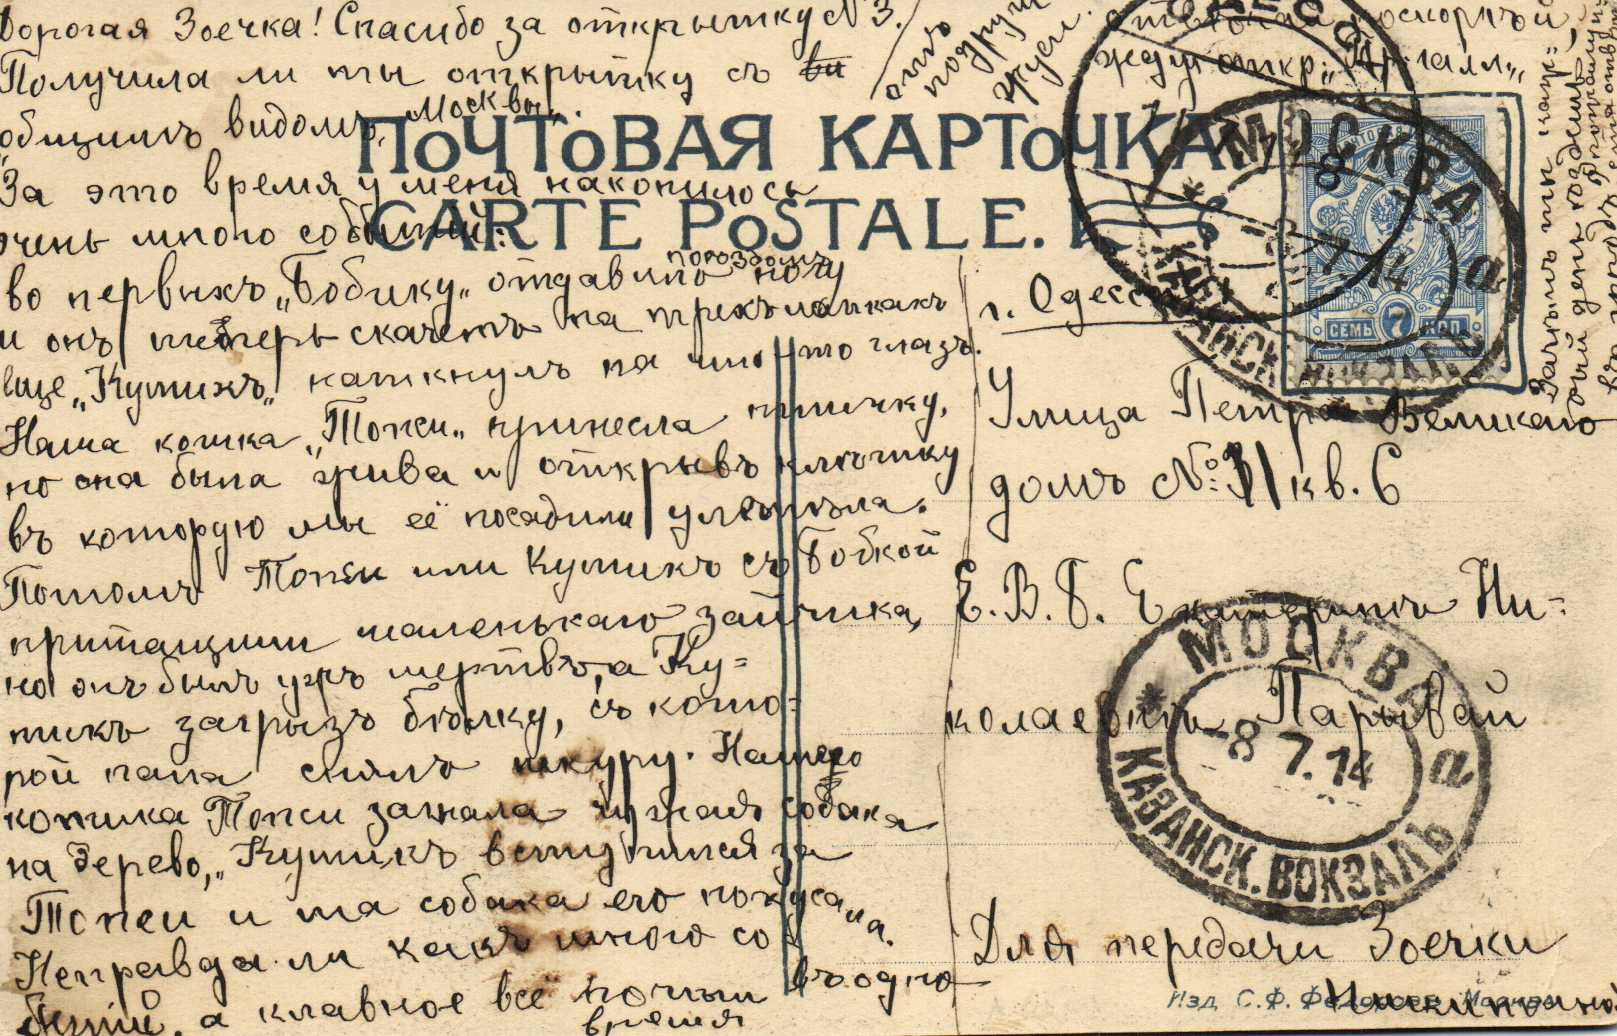 Дорогая Зоечка! Спасибо за открытку N 3.
Получила ли ты открытку съ
общимъ видомъ „Москвы“.
За это время у меня накопилось
очень много событий:
во первыхъ „Бобику„ отдавило поѣздомъ ногу
и онъ теперь скачетъ на трехъ лапкахъ
еще „Кутикъ„ наткнулъ на что-то глазъ.
Наша кошка „Топси„ принесла птичку,
но она была жива и открывъ клѣточку
въ которую мы её посадили улетѣла.
Потомъ Топси или Кутикъ съ Бобкой
притащили маленькаго зайчика,
но онъ былъ ужъ мертвъ, а Ку-
тикъ загрызъ бѣлку, съ кото-
рой папа снялъ шкуру. Нашего
котика Топси загнала чужая собака
на дерево, „Кутикъ вступился за
Топси и та собака его покусала.
Неправда ли какъ много со
бытій, а главное всё почти въ одно
время
отъ
подруги
Жуси.
жду откр.
ПОЧТОВАЯ КАРТОЧКА
CARTE POSTALE.
г. Одесса
Улица Петра Великаго
домъ №: 31 кв. 6
Е. В. Б. Екатеринѣ Ни-
колаевнѣ Парывай
Для передачи Зоечки
ОДЕССА
МОСКВА
8 7 14
а
КАЗАНСК. ВОКЗАЛЪ
СЕМЬ 7 КОП.
МОСКВА
-8 7.14
а
КАЗАНСК. ВОКЗАЛЪ
Изд. С. Ф. Москва